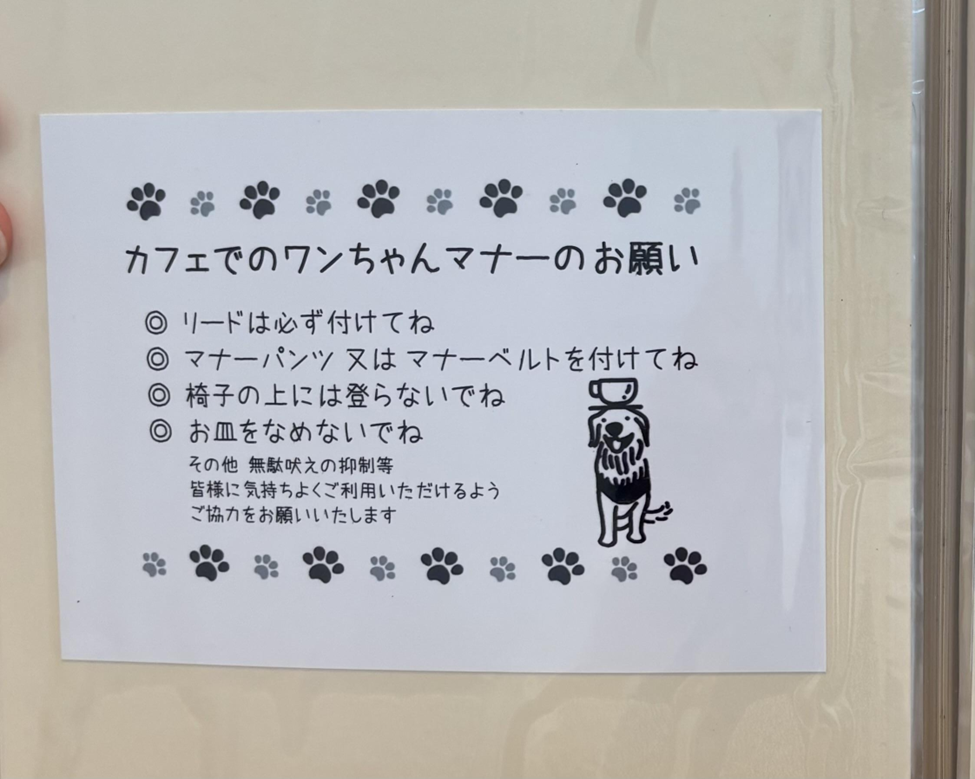 カフェでのワンちゃんマナーのお願い
◎ リードは必ず付けてね
◎ マナーパンツ 又は マナーベルトを付けてね
◎ 椅子の上には登らないでね
◎ お皿をなめないでね
その他 無駄吠えの抑制等
皆様に気持ちよくご利用いただけるよう
ご協力をお願いいたします